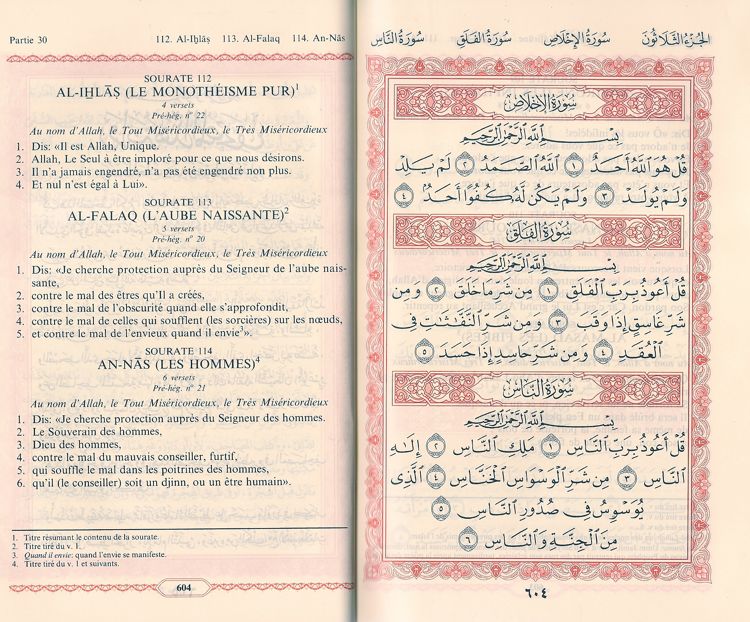 Partie 30 112. Al-Iẖlāṣ 113. Al-Falaq 114. An-Nās
SOURATE 112
AL-IẖLĀṢ (LE MONOTHÉISME PUR)¹
4 versets
Pré-hég. n° 22
Au nom d'Allah, le Tout Miséricordieux, le Très Miséricordieux
1. Dis: «Il est Allah, Unique.
2. Allah, Le Seul à être imploré pour ce que nous désirons.
3. Il n'a jamais engendré, n'a pas été engendré non plus.
4. Et nul n'est égal à Lui».
SOURATE 113
AL-FALAQ (L'AUBE NAISSANTE)²
5 versets
Pré-hég. n° 20
Au nom d'Allah, le Tout Miséricordieux, le Très Miséricordieux
1. Dis: «Je cherche protection auprès du Seigneur de l'aube nais-
sante,
2. contre le mal des êtres qu'Il a créés,
3. contre le mal de l'obscurité quand elle s'approfondit,
4. contre le mal de celles qui soufflent (les sorcières) sur les nœuds,
5. et contre le mal de l'envieux quand il envie³».
SOURATE 114
AN-NĀS (LES HOMMES)⁴
6 versets
Pré-hég. n° 21
Au nom d'Allah, le Tout Miséricordieux, le Très Miséricordieux
1. Dis: «Je cherche protection auprès du Seigneur des hommes.
2. Le Souverain des hommes,
3. Dieu des hommes,
4. contre le mal du mauvais conseiller, furtif,
5. qui souffle le mal dans les poitrines des hommes,
6. qu'il (le conseiller) soit un djinn, ou un être humain».
1. Titre résumant le contenu de la sourate.
2. Titre tiré du v. 1.
3. Quand il envie: quand l'envie se manifeste.
4. Titre tiré du v. 1 et suivants.
604
الجُزءُ الثَّلَاثُونَ سُورَةُ الإِخْلَاصِ سُورَةُ الفَلَقِ سُورَةُ النَّاسِ
سُورَةُ الإِخْلَاصِ
بِسْمِ ٱللَّهِ ٱلرَّحْمَٰنِ ٱلرَّحِيمِ
قُلْ هُوَ ٱللَّهُ أَحَدٌ ١ ٱللَّهُ ٱلصَّمَدُ ٢ لَمْ يَلِدْ
وَلَمْ يُولَدْ ٣ وَلَمْ يَكُن لَّهُۥ كُفُوًا أَحَدٌۢ ٤
سُورَةُ الفَلَقِ
بِسْمِ ٱللَّهِ ٱلرَّحْمَٰنِ ٱلرَّحِيمِ
قُلْ أَعُوذُ بِرَبِّ ٱلْفَلَقِ ١ مِن شَرِّ مَا خَلَقَ ٢ وَمِن
شَرِّ غَاسِقٍ إِذَا وَقَبَ ٣ وَمِن شَرِّ ٱلنَّفَّٰثَٰتِ فِى
ٱلْعُقَدِ ٤ وَمِن شَرِّ حَاسِدٍ إِذَا حَسَدَ ٥
سُورَةُ النَّاسِ
بِسْمِ ٱللَّهِ ٱلرَّحْمَٰنِ ٱلرَّحِيمِ
قُلْ أَعُوذُ بِرَبِّ ٱلنَّاسِ ١ مَلِكِ ٱلنَّاسِ ٢ إِلَٰهِ
ٱلنَّاسِ ٣ مِن شَرِّ ٱلْوَسْوَاسِ ٱلْخَنَّاسِ ٤ ٱلَّذِى
يُوَسْوِسُ فِى صُدُورِ ٱلنَّاسِ ٥
مِنَ ٱلْجِنَّةِ وَٱلنَّاسِ ٦
٦٠٤